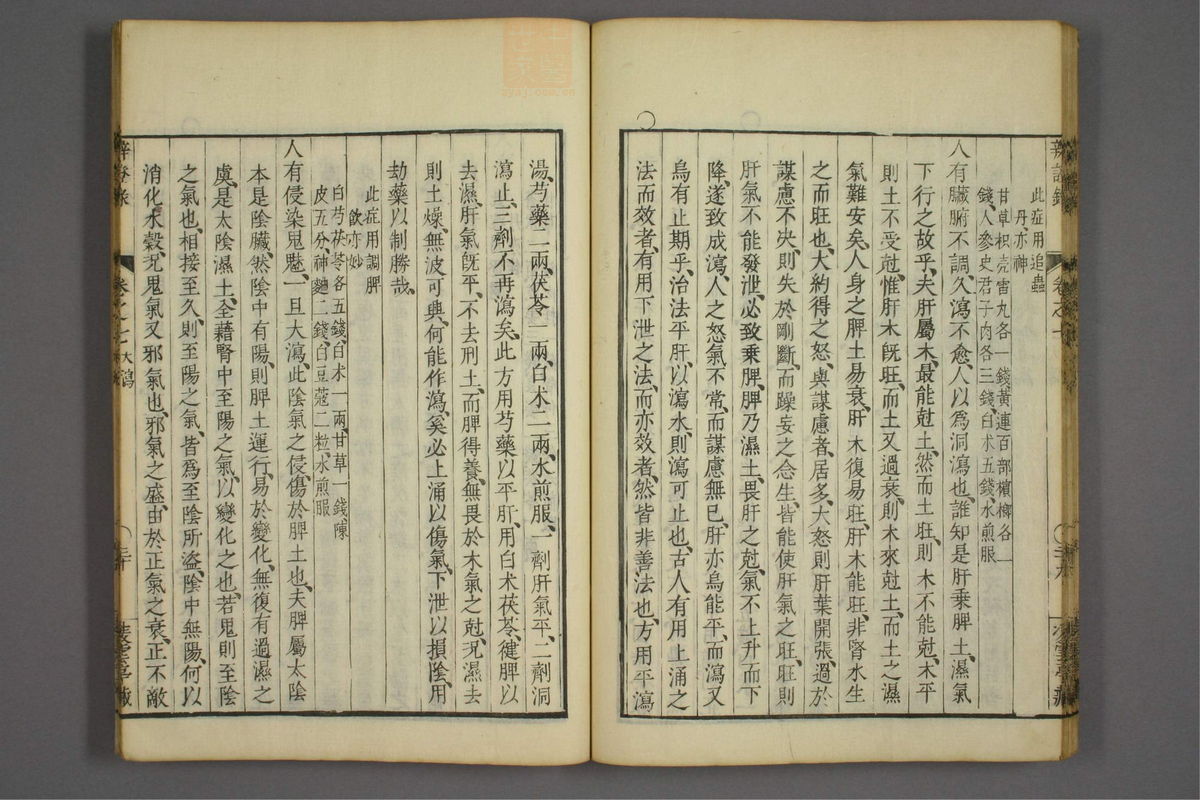 此症用追蟲
丹亦神
甘草枳壳雷丸各一錢黃連百部檳榔各一
錢人參史君子肉各三錢白术五錢水煎服
人有臟腑不調久瀉不愈人以爲洞瀉也誰知是肝乘脾土濕氣
下行之故乎夫肝屬木最能尅土然而土旺則木不能尅木平
則土不受尅惟肝木既旺而土又過衰則木來尅土而土之濕
氣難安矣人身之脾土易衰肝木復易旺肝木能旺非腎水生
之而旺也大約得之怒與謀慮者居多大怒則肝葉開張過於
謀慮不决則失於剛斷而躁妄之念生皆能使肝氣之旺旺則
肝氣不能發泄必致乘脾脾乃濕土畏肝之尅氣不上升而下
降遂致成瀉人之怒氣不常而謀慮無已肝亦烏能平而瀉又
烏有止期乎治法平肝以瀉水則瀉可止也古人有用上涌之
法而效者有用下泄之法而亦效者然皆非善法也方用平瀉
湯芍藥二兩茯苓一兩白术二兩水煎服一劑肝氣平二劑洞
瀉止三劑不再瀉矣此方用芍藥以平肝用白术茯苓健脾以
去濕肝氣既平不去刑土而脾得養無畏於木氣之尅况濕去
則土燥無波可興何能作瀉奚必上涌以傷氣下泄以損陰用
刧藥以制勝哉
此症用調脾
飲亦妙
白芍茯苓各五錢白术一兩甘草一錢陳
皮五分神麯二錢白豆蔻二粒水煎服
人有侵染鬼魅一旦大瀉此陰氣之侵傷於脾土也夫脾屬太陰
本是陰臟然陰中有陽則脾土運行易於變化無復有過濕之
虞是太陰濕土全藉腎中至陽之氣以變化之也若鬼則至陰
之氣也相接至久則至陽之氣皆爲至陰所盜陰中無陽何以
消化水穀况鬼氣又邪氣也邪氣之盛由於正氣之衰正不敵
卷之七
大瀉
三十